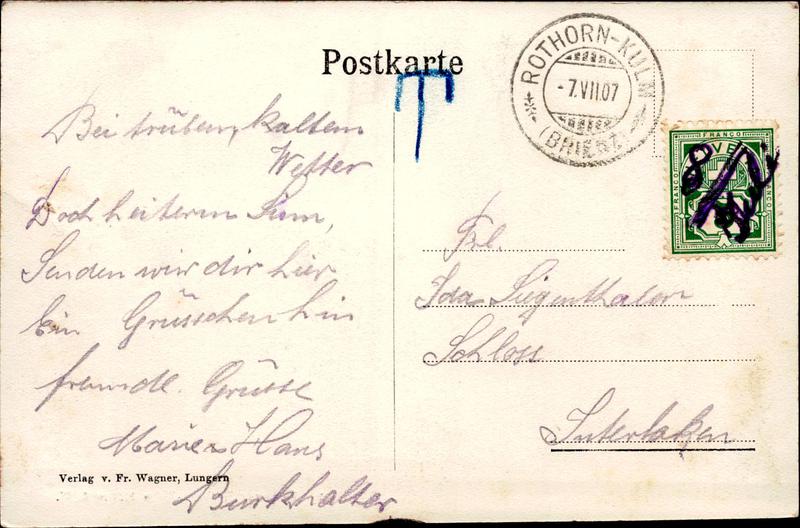 Postkarte
T
ROTHORN-KULM
-7.VII.07
(BRIENZ)
FRANCO
Bei trübem, kaltem
Wetter
Doch heiterm Sinn,
Senden wir dir hier
Ein Grüsschen hin
freundl. Grüsse
Marie + Hans
Burkhalter
Verlag v. Fr. Wagner, Lungern
Frl.
Ida Siegenthaler
Schloss
Interlaken